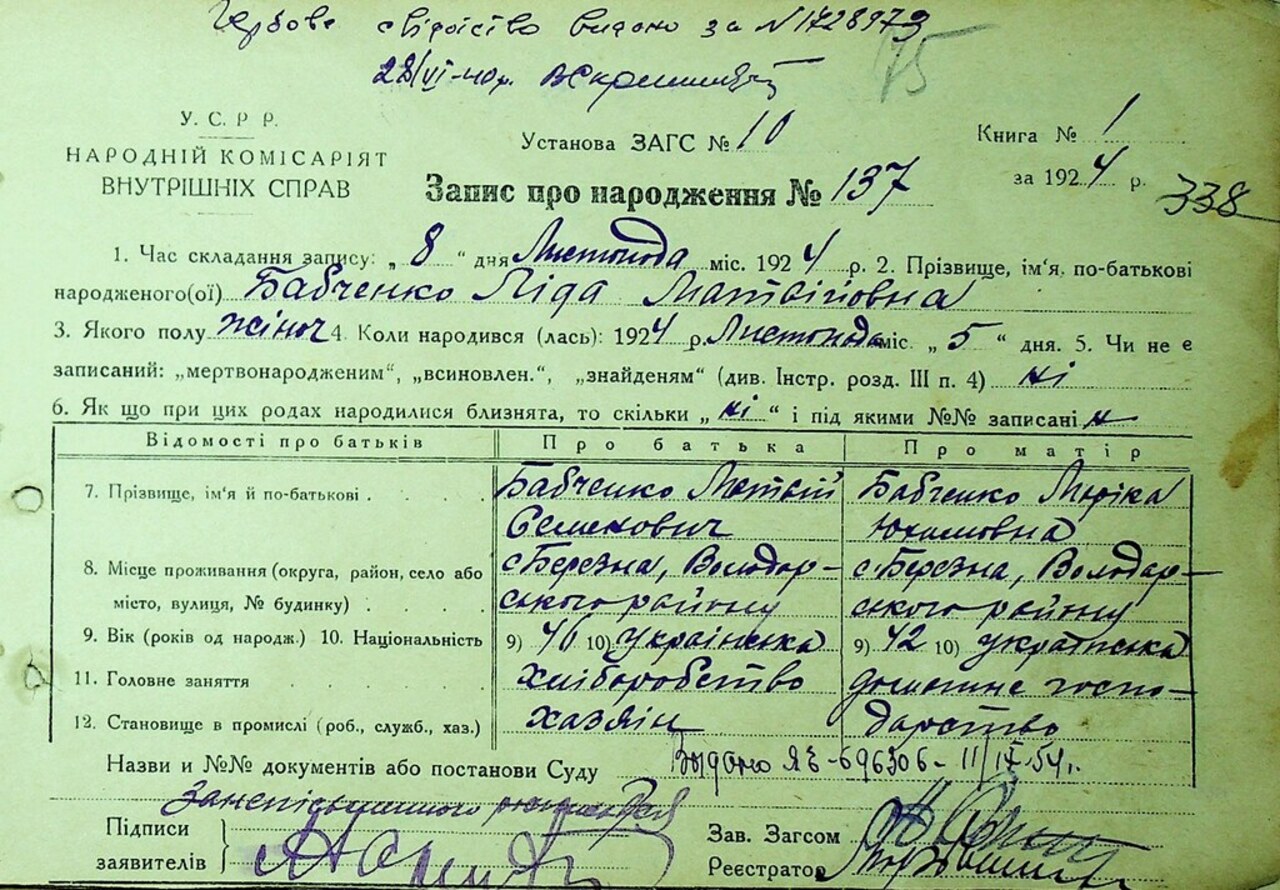 Гербове свідоцтво видано за N1728979
28/VI-40р.
75
У. С. Р. Р.
НАРОДНІЙ КОМІСАРІЯТ
ВНУТРІШНІХ СПРАВ
Установа ЗАГС № 10
Книга № 1
за 1924 р.
338
Запис про народження № 137
1. Час складання запису: „ 8 “ дня Листопода міс. 1924 р. 2. Прізвище, ім'я, по-батькові
народженого(ої) Бабченко Ліда Матвійовна
3. Якого полу жіноч 4. Коли народився (лась): 1924 р. Листопода міс. „ 5 “ дня. 5. Чи не є
записаний: „мертвонародженим“, „всиновлен.“, „знайденям“ (див. Інстр. розд. III п. 4) ні
6. Як що при цих родах народилися близнята, то скільки „ ні “ і під якими №№ записані н
Відомості про батьків Про батька Про матір
7. Прізвище, ім'я й по-батькові . . . . Бабченко Матвій Бабченко Маріка
Семенович Юхимовна
8. Місце проживання (округа, район, село або с. Березна, Володар- с. Березна, Володар-
місто, вулиця, № будинку) . . . . ського району ського району
9. Вік (років од народж.) 10. Національність 9) 46 10) українська 9) 42 10) українська
11. Головне заняття . . . . . хліборобство домашнє госпо-
12. Становище в промислі (роб., служб., хаз.) хазяїн дарство
Назви и №№ документів або постанови Суду Выдано ЯЕ-696306-11/IX-54г.
Підписи
заявителів
Зав. Загсом
Реєстратор